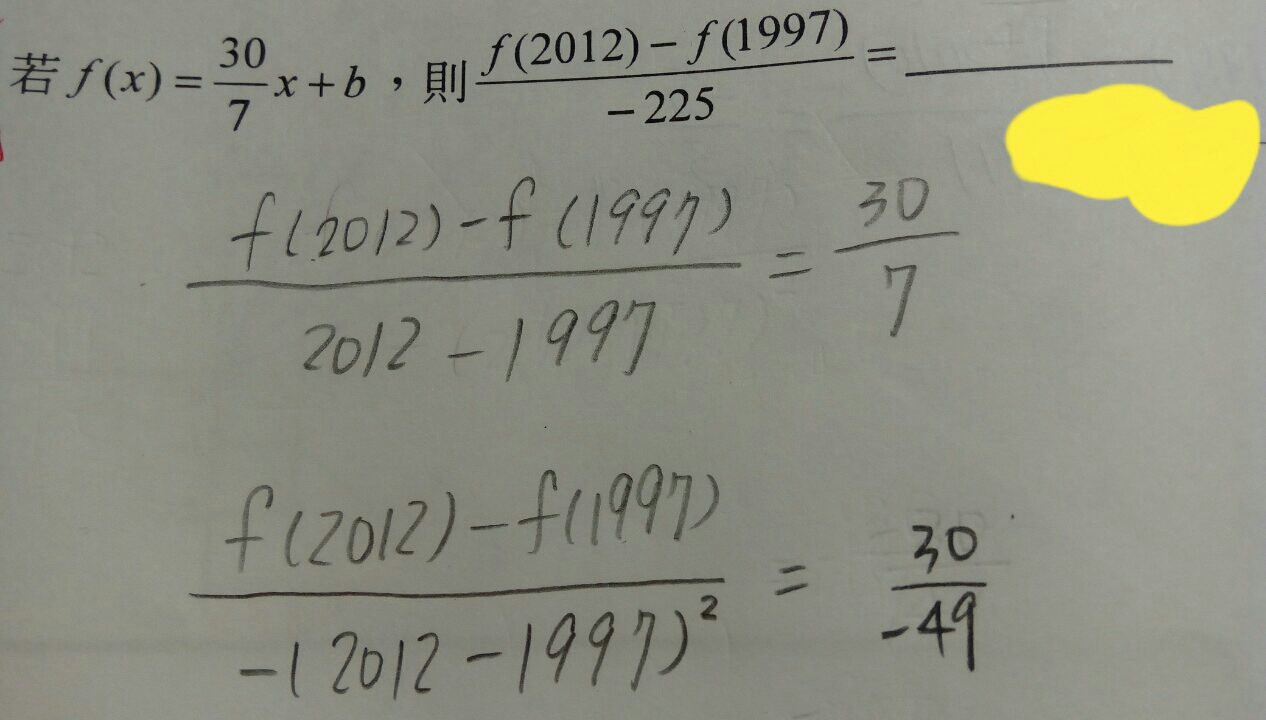 若 f(x) = 30/7 x + b，則 f(2012) − f(1997) / −225 = ________
f(2012) - f(1997) / 2012 - 1997 = 30/7
f(2012) - f(1997) / -(2012 - 1997)² = 30/-49